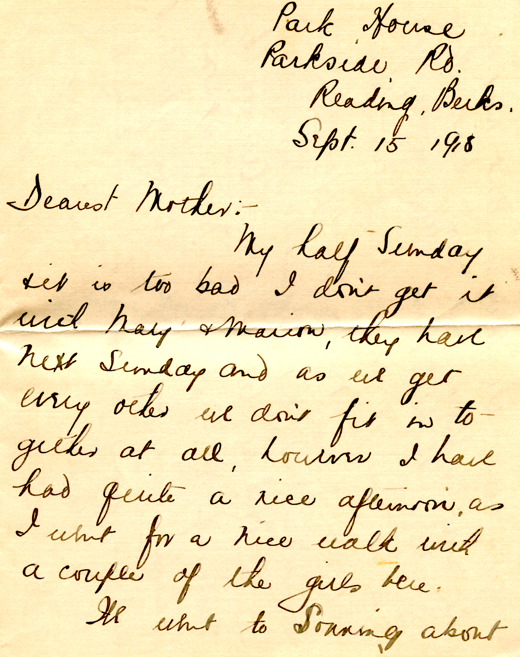 Park House
Parkside Rd.
Reading, Berks.
Sept. 15 1918
Dearest Mother:-
My half Sunday
& it is too bad I don't get it
with Mary & Marion, they have
next Sunday and as we get
every other we don't fit in to-
gether at all, however I have
had quite a nice afternoon, as
I went for a nice walk with
a couple of the girls here.
We went to Sonning about